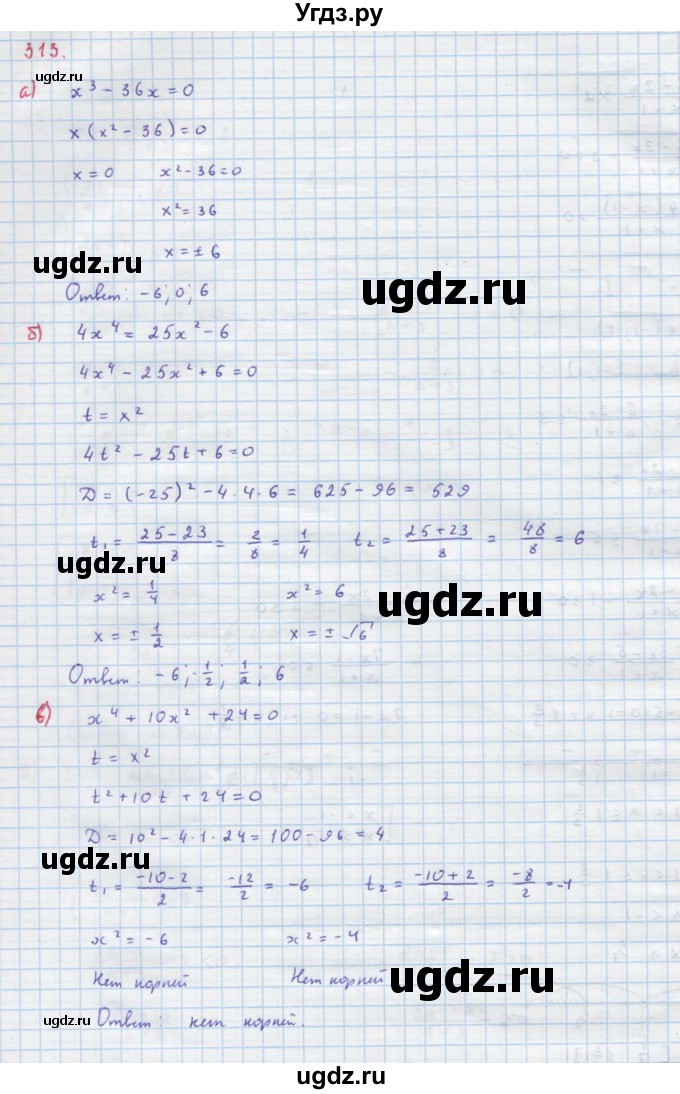 Угдз.ру
313.
ugdz.ru
а) x³ − 36x = 0
x (x² − 36) = 0
x = 0 x² − 36 = 0
x² = 36
x = ± 6
ugdz.ru
ugdz.ru
Ответ: −6; 0; 6
б) 4x⁴ = 25x² − 6
4x⁴ − 25x² + 6 = 0
t = x²
4t² − 25t + 6 = 0
D = (−25)² − 4·4·6 = 625 − 96 = 529
t₁ = (25 − 23)/8 = 2/8 = 1/4 t₂ = (25 + 23)/8 = 48/8 = 6
ugdz.ru
ugdz.ru
x² = 1/4 x² = 6
x = ± 1/2 x = ± √6
Ответ: −6; −1/2; 1/2; 6
в) x⁴ + 10x² + 24 = 0
t = x²
t² + 10t + 24 = 0
D = 10² − 4·1·24 = 100 − 96 = 4
ugdz.ru
t₁ = (−10 − 2)/2 = −12/2 = −6 t₂ = (−10 + 2)/2 = −8/2 = −4
x² = −6 x² = −4
Нет корней Нет корней
ugdz.ru
ugdz.ru
Ответ: нет корней.
ugdz.ru